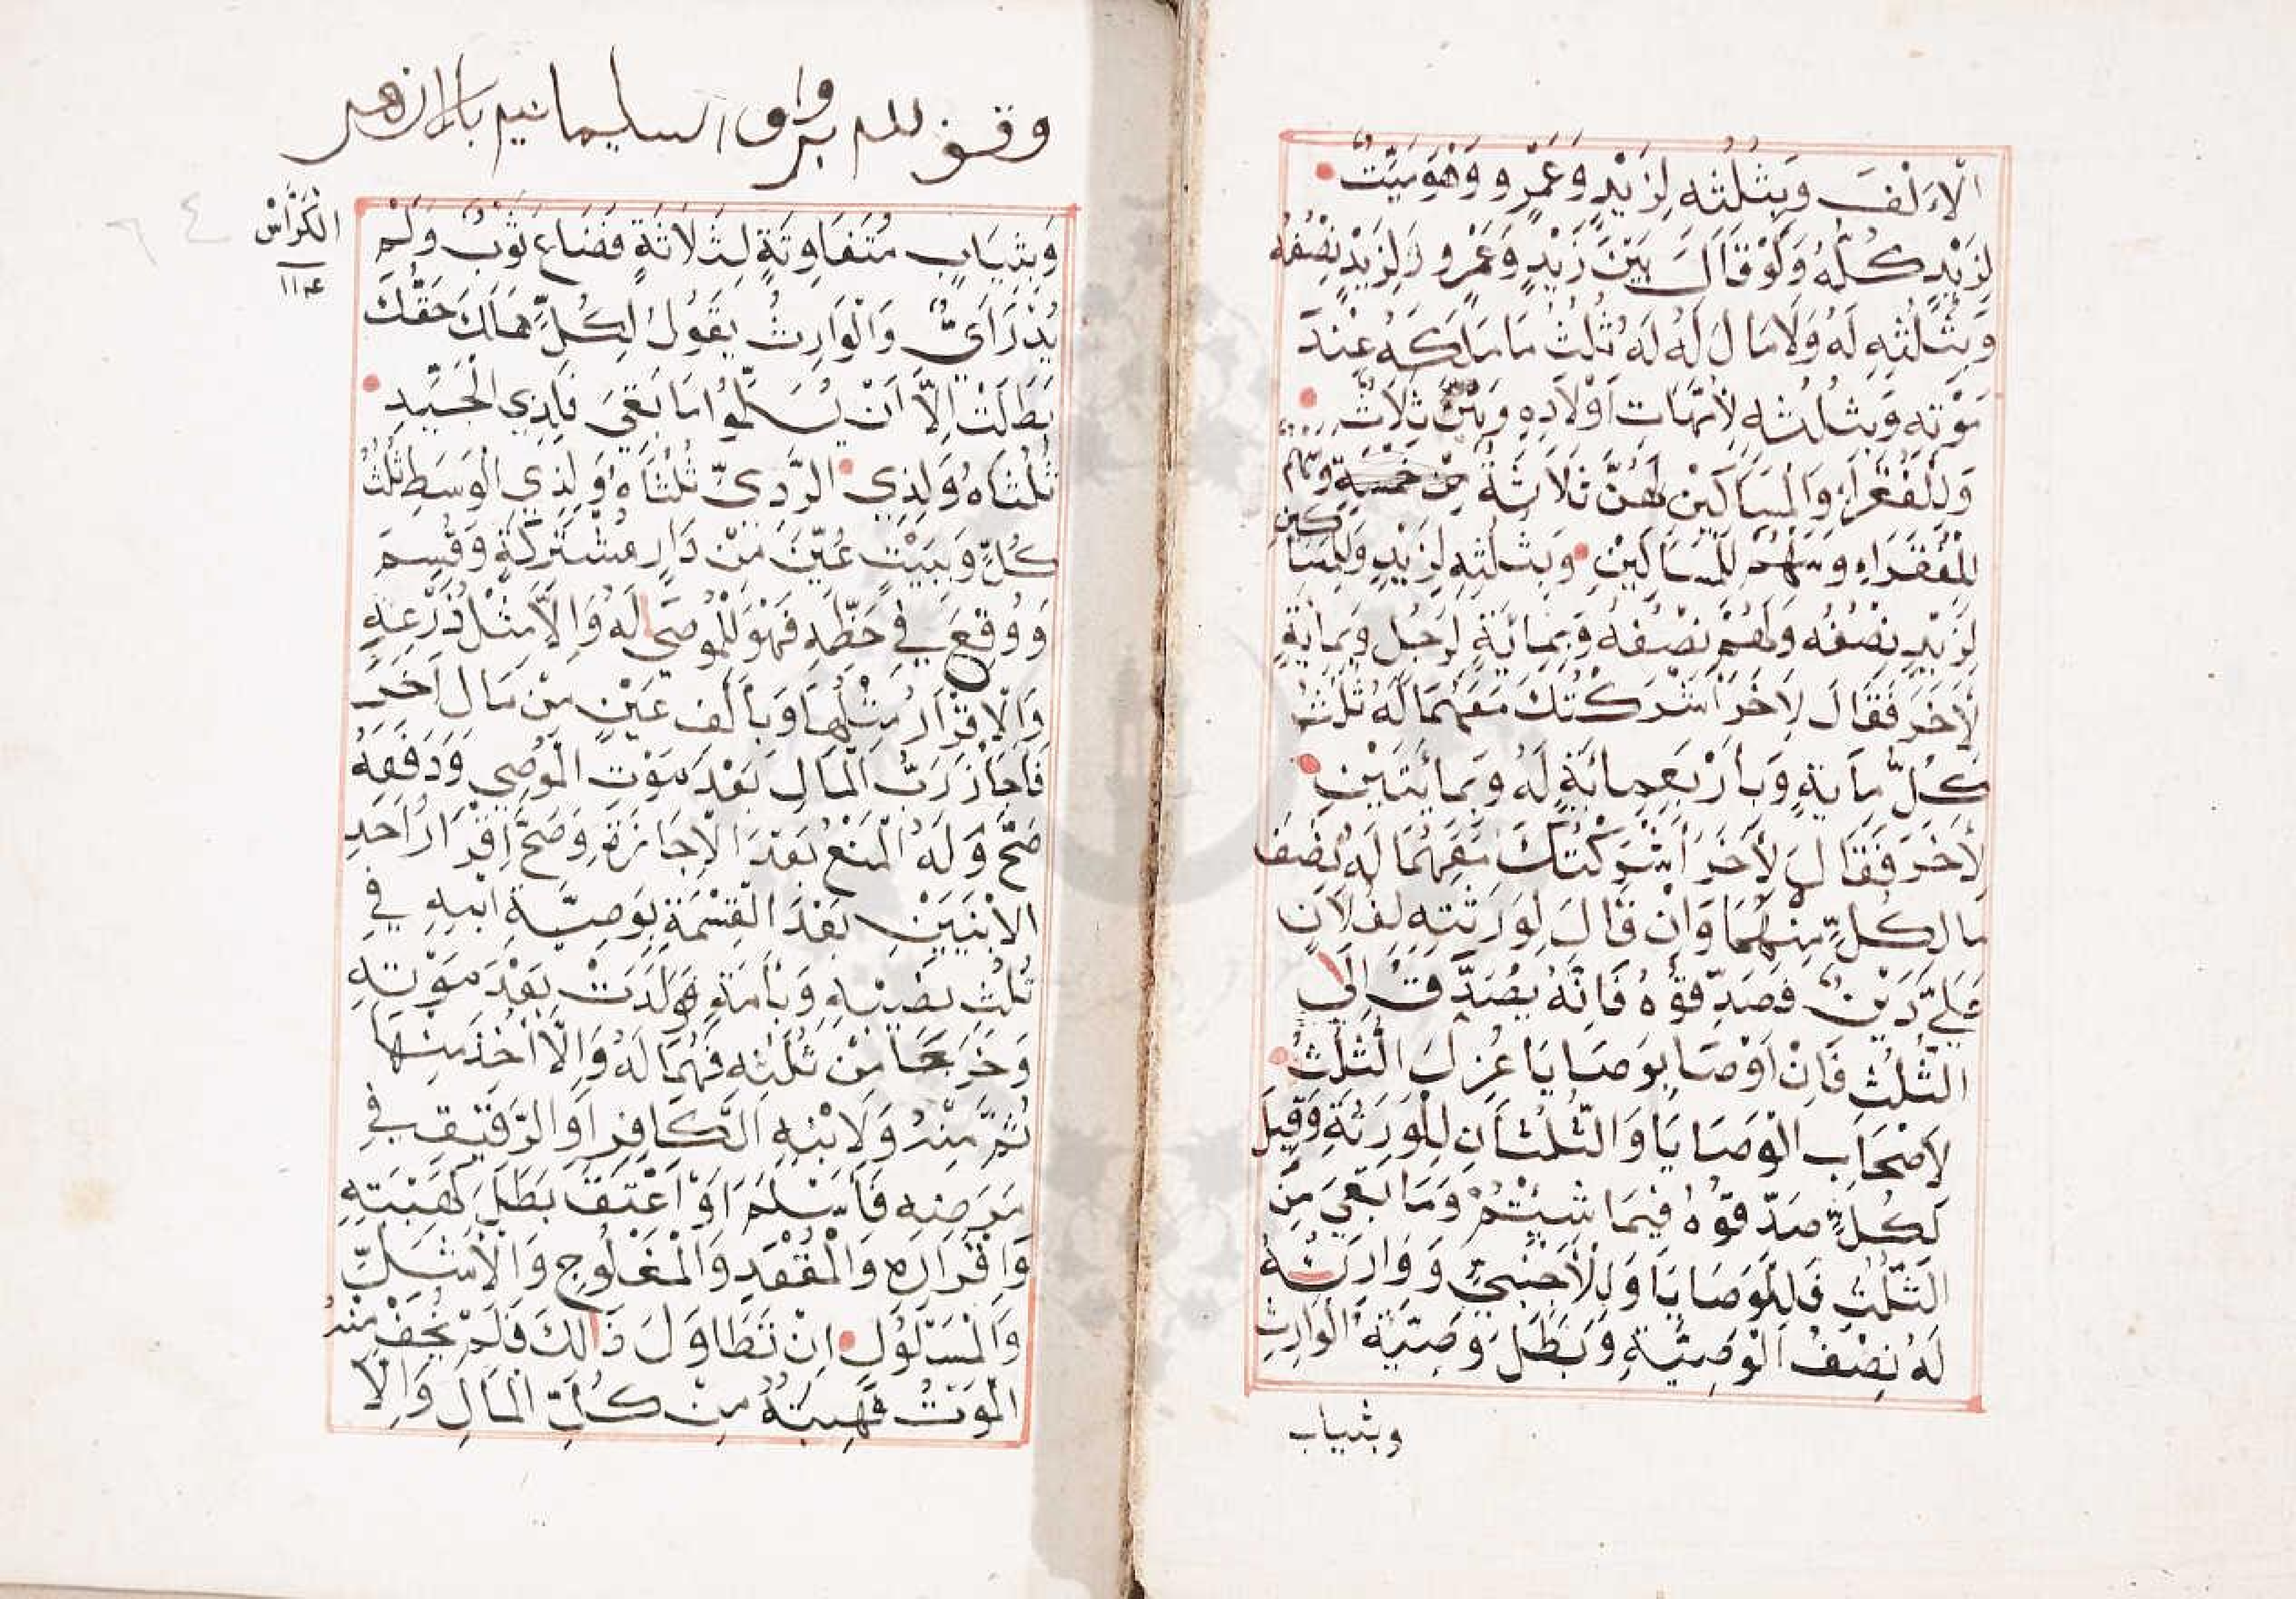 الْأَلْفَ وَبِثُلُثِهِ لِزَيْدٍ وَعَمْرٍو وَهُوَ مَيِّتٌ
لِزَيْدٍ كُلُّهُ وَلَوْ قَالَ بَيْنَ زَيْدٍ وَعَمْرٍو لِزَيْدٍ نِصْفُهُ
وَبِثُلُثِهِ لَهُ وَلَا مَالَ لَهُ لَهُ ثُلُثُ مَا مَلَكَهُ عِنْدَ
مَوْتِهِ وَبِثُلُثِهِ لِأُمَّهَاتِ أَوْلَادِهِ وَهُنَّ ثَلَاثٌ
وَلِلْفُقَرَاءِ وَالْمَسَاكِيْنِ لَهُنَّ ثَلَاثَةٌ مِنْ خَمْسَةٍ وَسَهْمٌ
لِلْفُقَرَاءِ وَسَهْمٌ لِلْمَسَاكِيْنِ وَبِثُلُثِهِ لِزَيْدٍ وَلِلْمَسَاكِينِ
لِزَيْدٍ نِصْفُهُ وَلَهُمْ نِصْفُهُ وَبِمِائَةٍ لِرَجُلٍ وَبِمِائَةٍ
لِأَخَرَ فَقَالَ لِأَخَرَ أَشْرَكْتُكَ مَعَهُمَا لَهُ ثُلُثُ
كُلِّ مِايَةٍ وَبِأَرْبَعِمِائَةٍ لَهُ وَبِمِائَيْتَيْنِ
لِأَخَرَ فَقَالَ لِأَخَرَ أَشْرَكْتُكَ مَعَهُمَا لَهُ نِصْفُ
مَا لِكُلٍّ مِنْهُمَا وَإِنْ قَالَ لِوَرَثَتِهِ لِفُلَانٍ
عَلَيَّ دَيْنٌ فَصَدِّقُوهُ فَإِنَّهُ يُصَدَّقُ إِلَى
الثُّلُثِ فَإِنْ أَوْصَا بِوَصَايَا عُزِلَ الْثُلُثُ
لِأَصْحَابِ الْوَصَايَا وَالثُّلُثَانِ لِلْوَرَثَةِ وَقِيلَ
لِكُلٍّ صَدِّقُوهُ فِيمَا شِيْتُمْ وَمَا بَقِيَ مِنَ
الثُّلُثِ فَلِلْوَصَايَا وَلِلْأَجْنَبِيِّ وَوَارِثُهُ
لَهُ نِصْفُ الْوَصِيَّةِ وَبَطَلَ وَصِيَّةُ الْوَارِثِ
وبثياب
وقف للمـ برواق السليمانيه بالازهر
الْكُرَّاسْ
١١٤
٦٤
وَبِثِيَابٍ مُتَفَاوِتَةٍ لِثَلَاثَةٍ فَضَاعَ ثَوْبٌ وَلَمْ
يُدْرَ أَيٌّ وَالْوَارِثُ يَقُولُ لِكُلٍّ هَلَكَ حَقُّكَ
بَطَلَتْ إِلَّا أَنْ يُسَلِّمُوا مَا بَقِيَ فَلِذِي الْجَيِّدِ
ثُلُثَاهُ وَلِذِي الرَّدِىِّ ثُلُثَاهُ وَلِذِي الْوَسَطِ ثُلُثُ
كُلٍّ وَبِبَيْتٍ عُيِّنَ مِنْ دَارٍ مُشْتَرَكَةٍ وَقُسِمَ
وَوَقَعَ فِي حَظِّهِ فَهُوَ لِلْمُوصَى لَهُ وَإِلَّا مِثْلُ ذَرْعِهِ
وَالْإِقْرَارُ مِثْلُهَا وَبِأَلْفٍ عَيْنٍ مِنْ مَالِ أَخَرَ
فَأَجَازَ رَبُّ الْمَالِ بَعْدَ مَوْتِ الْمُوصِي وَدَفَعَهُ
صَحَّ وَلَهُ الْمَنْعُ بَعْدَ الْإِجَازَةِ وَصَحَّ إِقْرَارُ أَحَدِ
الْابْنَيْنِ بَعْدَ الْقِسْمَةِ بِوَصِيَّةِ أَبِيهِ فِي
ثُلُثِ نَصِيْبِهِ وَبِأَمَةٍ فَوَلَدَتْ بَعْدَ مَوْتِهِ
وَخَرَجَا مِنْ ثُلُثِهِ فَهُمَا لَهُ وَإِلَّا أَخَذَ مِنْهَا
ثُمَّ مِنْهُ وَلِابْنِهِ الْكَافِرِ أَوِ الرَّقِيْقِ فِي
مَرَضِهِ فَأَسْلَمَ أَوْ أَعْتَقَ بَطَلَ كَهِبَتِهِ
وَإِقْرَارِهِ وَالْمُقْعَدِ وَالْمَفْلُوجِ وَالْأَشَلِّ
وَالْمَسْلُوْلِ إِنْ تَطَاوَلَ ذَالِكَ فَلَمْ يُخَفْ مِنْهُ
الْمَوْتُ فَهِبَتُهُ مِنْ كُلِّ الْمَالِ وَإِلَّا